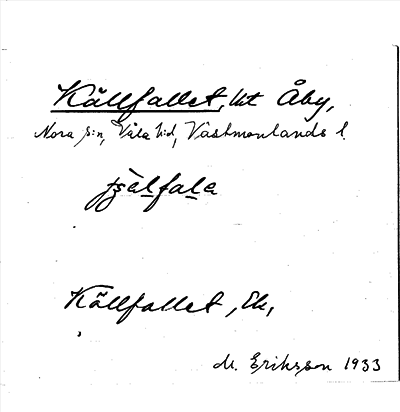 Källfallet, lht Åby,
Nora s:n, Våla h:d, Västmanlands l.
Källfallet, Ek,
M. Eriksson 1933